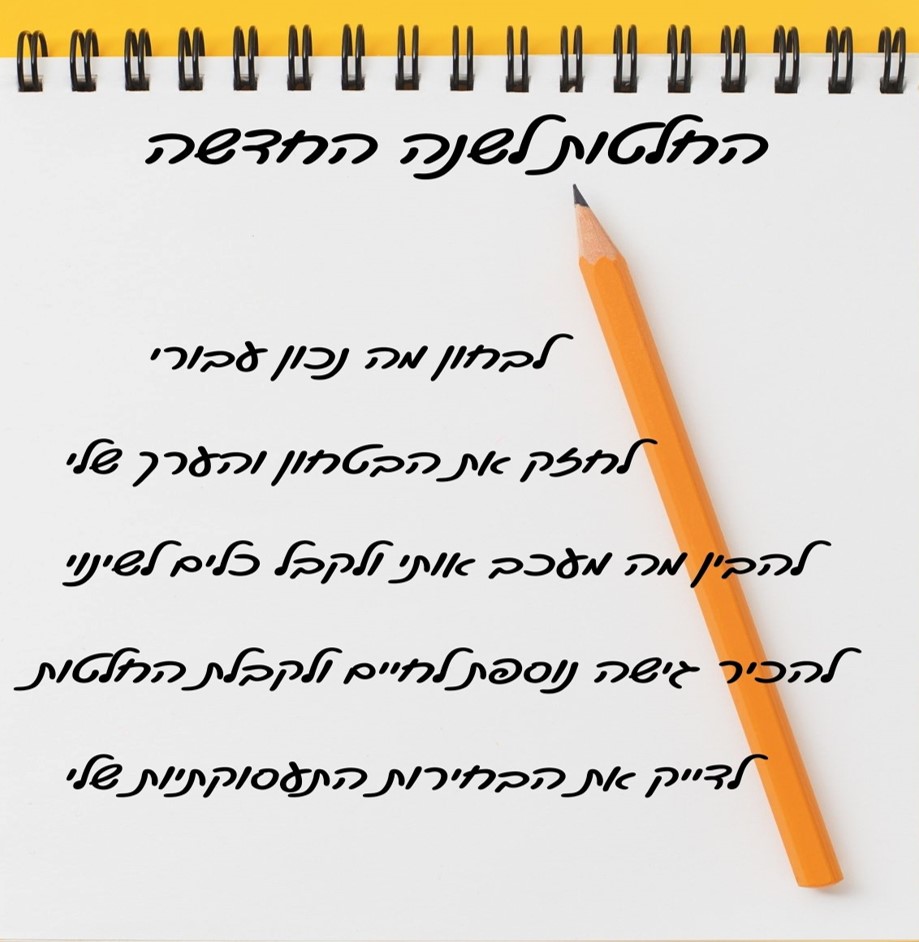 החלטות לשנה החדשה
לבחון מה נכון עבורי
לחזק את הבטחון והערך שלי
להבין מה מעכב אותי ולקבל כלים לשינוי
להכיר גישה נוספת לחיים ולקבלת החלטות
לדייק את הבחירות התעסוקתיות שלי